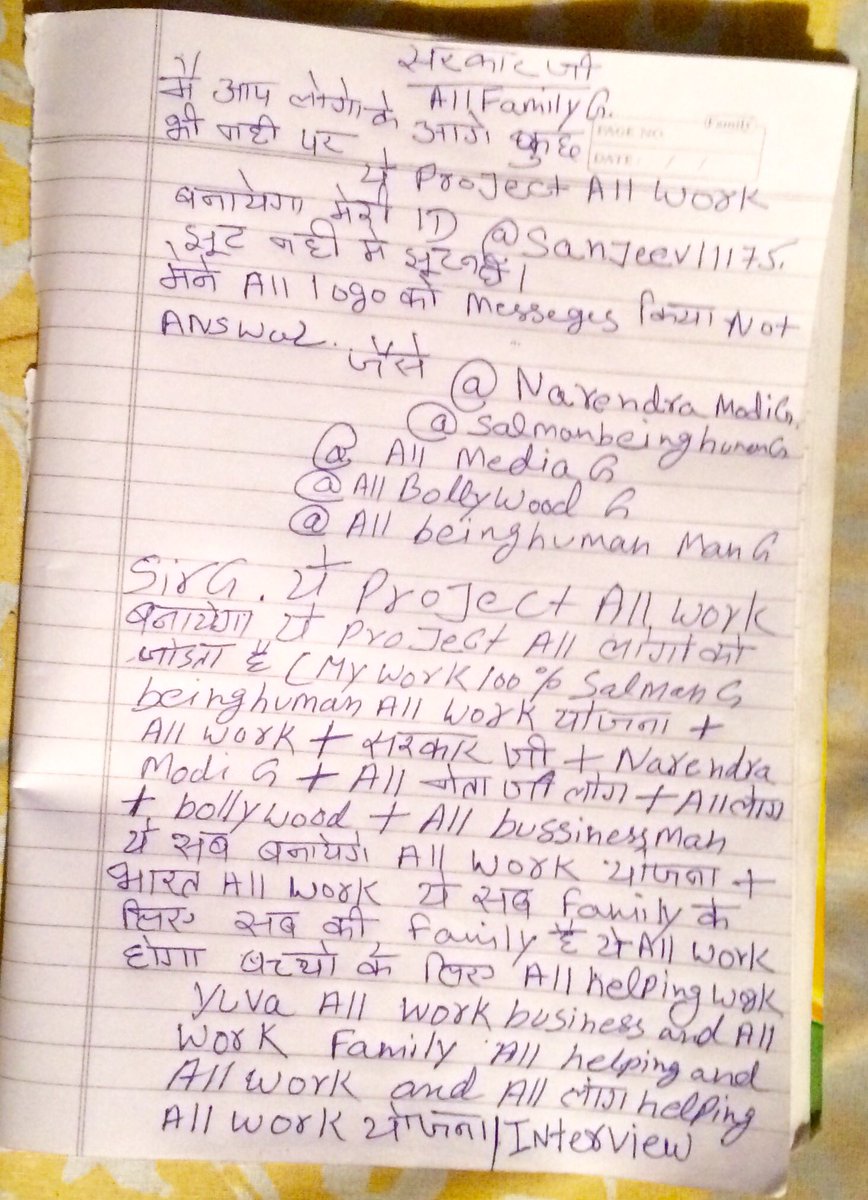 सरकार जी
All Family G.
मै आप लोगो के आगे कुछ
भी नही पर
PAGE NO.
DATE: / /
ये Project All Work
बनायेगा मेरी ID @Sanjeev11175.
झूट नही मे झूट नही।
मेने All logo को Messeges किया Not
Answar.. जैसे
@ Narendra Modi G.
@ Salmanbeinghuman G
@ All Media G
@ All Bollywood G
@ All beinghuman Man G
Sir G. ये Project All work
बनायेगा ये Project All लोगो को
जोडता है (My work 100% Salman G
beinghuman All work योजना +
All work + सरकार जी + Narendra
Modi G + All नेता जी लोग + All लोग
+ bollywood + All bussiness Man
ये सब बनायेगे All work योजना +
भारत All work ये सब Family के
लिए सब की Family है ये All work
होगा बच्चो के लिए All helping work
Yuva All work business and All
Work Family All helping and
All work and All लोग helping
All work योजना/Interview